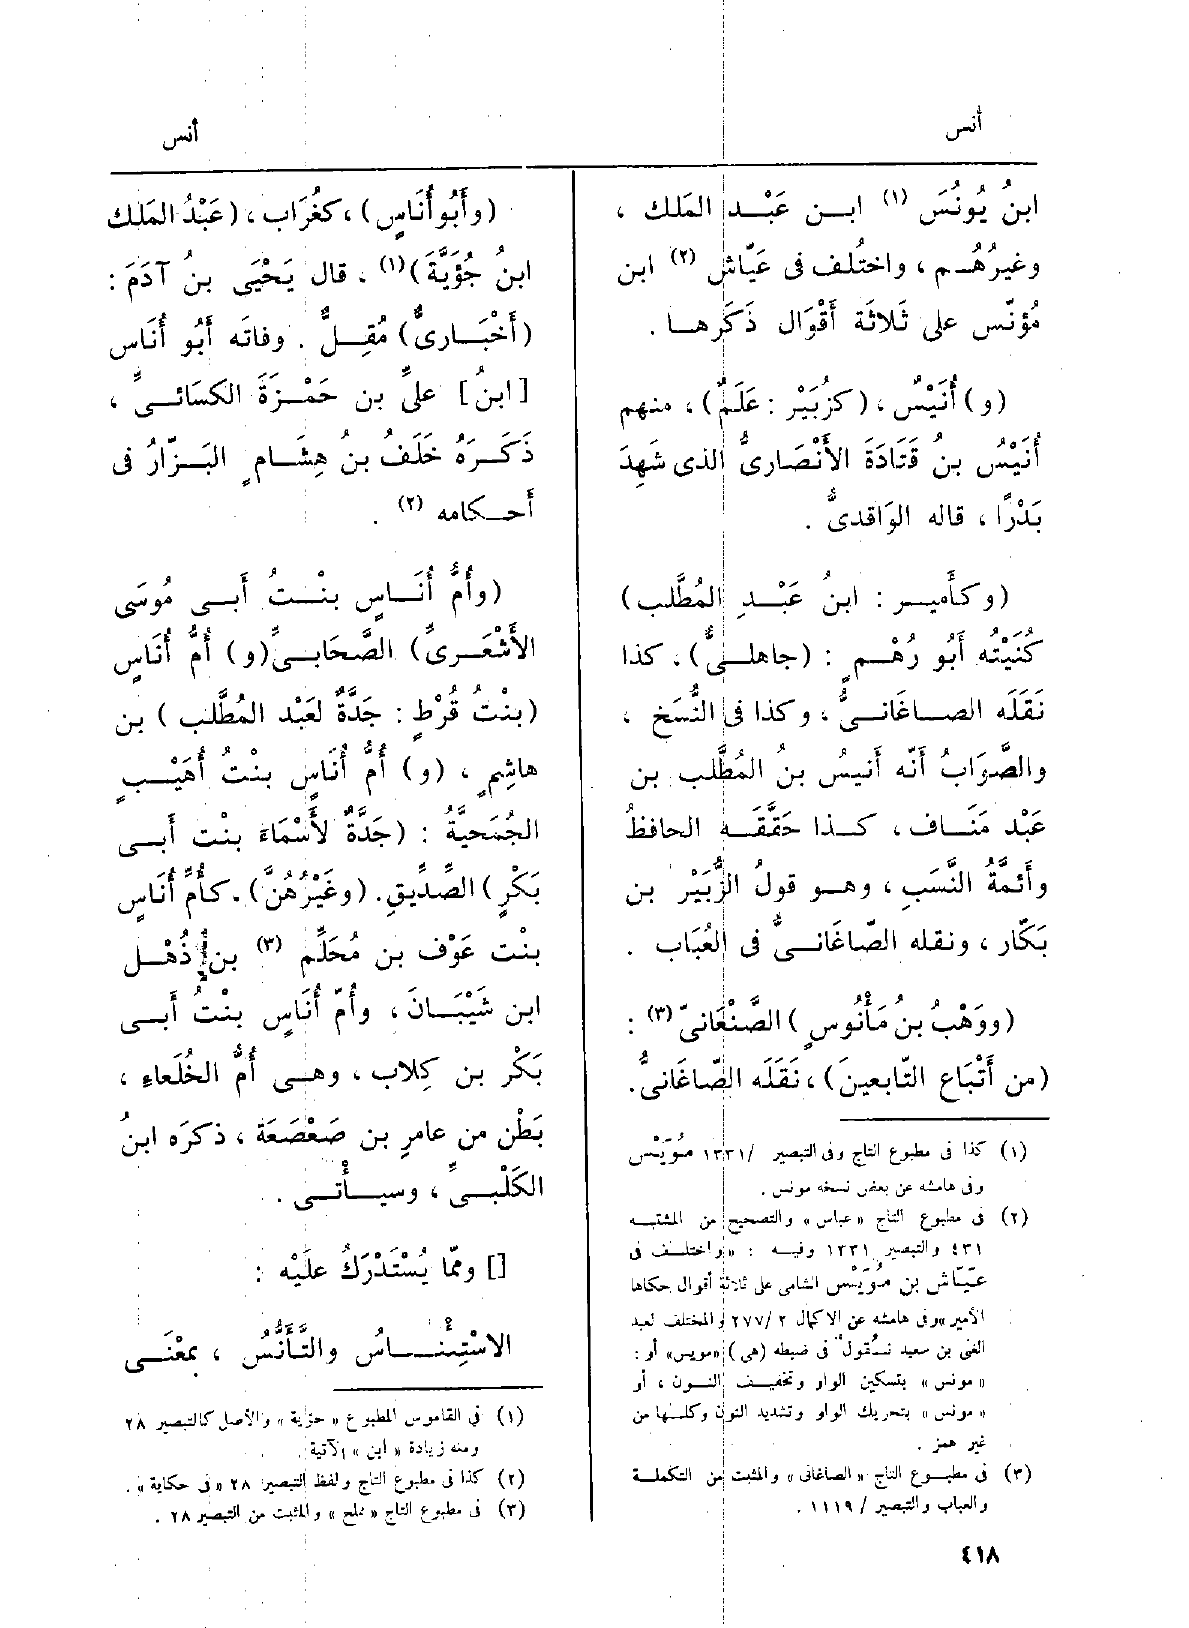 أنس
أنس
ابنُ يُونُسَ (١) ابن عَبْد المَلك ،
وغيرُهُم ، واختُلف فى عَيّاش (٢) ابن
مُؤنّس على ثَلاثَة أَقْوَال ذَكَرها .
(و) أُنَيْسٌ ، (كزُبَيْر : عَلَمٌ) ، منهم
أُنَيْسُ بنُ قَتَادَةَ الأَنْصَارىُّ الذى شَهِدَ
بَدْرًا ، قاله الوَاقدىُّ .
(وكأَمير : ابنُ عَبْدِ المُطَّلب)
كُنْيَتُه أَبُو رُهْمٍ : (جاهلىٌّ) . كذا
نَقَلَه الصاغانىُّ ، وكذا فى النُّسَخ ،
والصَّوَابُ أَنّه أَنيسُ بنُ المُطَّلب بن
عَبْد مَنَاف ، كذا حَقَّقَه الحافظُ
وأَئمَّةُ النَّسَبِ ، وهو قولُ الزُّبَيْر بن
بَكّار ، ونقله الصّاغانىُّ فى العُبَاب .
(ووَهْبُ بنُ مَأْنُوسٍ) الصَّنْعَانىّ (٣) :
(من أَتْبَاع التّابعينَ) ، نَقَلَه الصّاغَانىُّ.
(١) كذا فى مطبوع التاج وفى التبصير /١٣٣١ مُوَيْس
وفى هامشه عن بعض نسخه مونس .
(٢) فى مطبوع التاج «عباس» والتصحيح من المشتبه
٤٣١ والتبصير ١٣٣١ وفيه : «واختلف فى
عَيّاش بن مُوَيْس الشامى على ثلاثة أقوال حكاها
الأمير» وفى هامشه عن الاكمال ٢ /٢٧٧ والمختلف لعبد
الغنى بن سعيد نقول فى ضبطه (هى) «مويس» أو :
«مونس» بتسكين الواو وتخفيف النون ، أو
«مونس» بتحريك الواو وتشديد النون وكلها من
غير همز .
(٣) فى مطبوع التاج «الصاغانى» والمثبت من التكملة
والعباب والتبصير / ١١١٩ .
(وأَبُو أُنَاسٍ) ، كغُرَاب ، (عَبْدُ المَلك
ابنُ جُؤَيَّةَ) (١) ، قال يَحْيَى بنُ آدَمَ :
(أَخْبَارىٌّ) مُقِلٌّ . وفاتَه أَبُو أُنَاس
[ابنُ] علىِّ بن حَمْزَةَ الكسَائىِّ ،
ذَكَرَهُ خَلَفُ بنُ هِشَامٍ البَزّارُ فى
أَحكامه (٢) .
(وأُمُّ أُنَاسٍ بنْتُ أَبى مُوسَى
الأَشْعَرىِّ) الصَّحَابىِّ (و) أُمُّ أُنَاسٍ
(بنْتُ قُرْطٍ : جَدَّةٌ لعَبْد المُطَّلب) بن
هاشِمٍ ، (و) أُمُّ أُنَاسٍ بنْتُ أُهَيْبٍ
الجُمَحيَّةُ : (جَدَّةٌ لأَسْمَاءَ بنْت أَبى
بَكْرٍ) الصِّدِّيقِ. (وغَيْرُهُنَّ) . كأُمِّ أُنَاس
بنْت عَوْف بن مُحَلِّم (٣) بن ذُهْل
ابن شَيْبَانَ ، وأُمّ أُنَاسٍ بنْتُ أَبى
بَكْر بن كِلاب ، وهى أُمُّ الخُلَعاء ،
بَطْن من عامر بن صَعْصَعَة ، ذكرَه ابنُ
الكَلْبىِّ ، وسيأْتى .
[] وممّا يُسْتَدْرَكُ علَيْه :
الاسْتِئْنَاسُ والتَّأَنُّسُ ، بمَعْنَى
(١) فى القاموس المطبوع «حؤية» والأصل كالتبصير ٢٨
ومنه زيادة «ابن» الآتية .
(٢) كذا فى مطبوع التاج ولفظ التبصير: ٢٨ «فى حكاية» .
(٣) فى مطبوع التاج «ملح» والمثبت من التبصير ٢٨ .
٤١٨